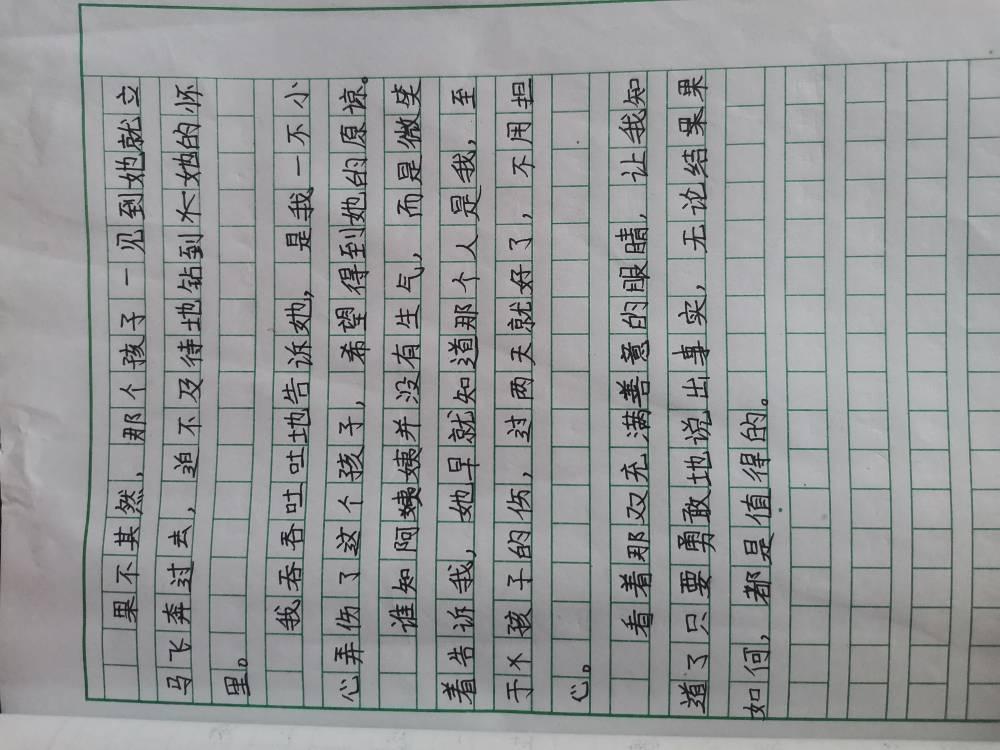 果不其然，那个孩子一见到她就立
马飞奔过去，迫不及待地钻到她的怀
里。
我吞吞吐吐地告诉她，是我一不小
心弄伤了这个孩子，希望得到她的原谅。
谁知阿姨并没有生气，而是微笑
着告诉我，她早就知道那个人是我，至
于孩子的伤，过两天就好了，不用担
心。
看着那双充满善意的眼睛，让我知
道了只要勇敢地说出事实，无论结果果
如何，都是值得的。